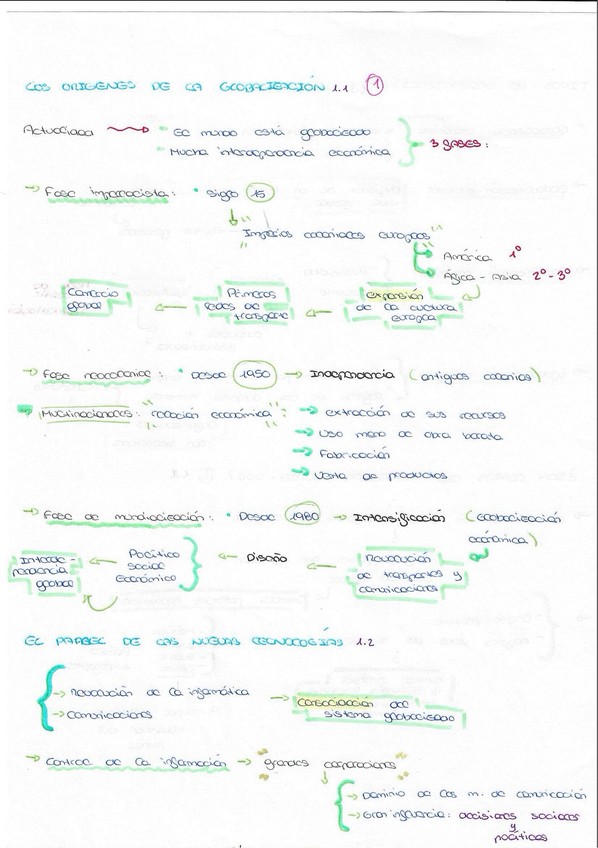 LOS ORIGENES DE LA GLOBALIZACIÓN 1.1 ①
Actualidad → • El mundo está globalizado
• Mucha interdependencia económica
3 fases:
→ Fase imperialista: • siglo 15
"Imperios coloniales europeos"
América 1º
África - Asia 2º-3º
Comercio global ← Primeras redes de transporte ← expansión de la cultura europea
→ Fase neocolonial: • Desde 1950 → Independencia (antiguas colonias)
→ Multinacionales: "relación económica": → extracción de sus recursos
→ Uso mano de obra barata
→ Fabricación
→ Venta de productos
→ Fase de mundialización: • Desde 1980 → Intensificación (Globalización económica)
Interdependencia global ← Político social económico ← Diseño ← Revolución de transportes y comunicaciones
EL PAPEL DE LAS NUEVAS TECNOLOGÍAS 1.2
→ Revolución de la informática
→ Comunicaciones
→ Consolidación del sistema globalizado
→ Control de la información → "grandes corporaciones"
→ Dominio de los m. de comunicación
→ Gran influencia: decisiones sociales y políticas